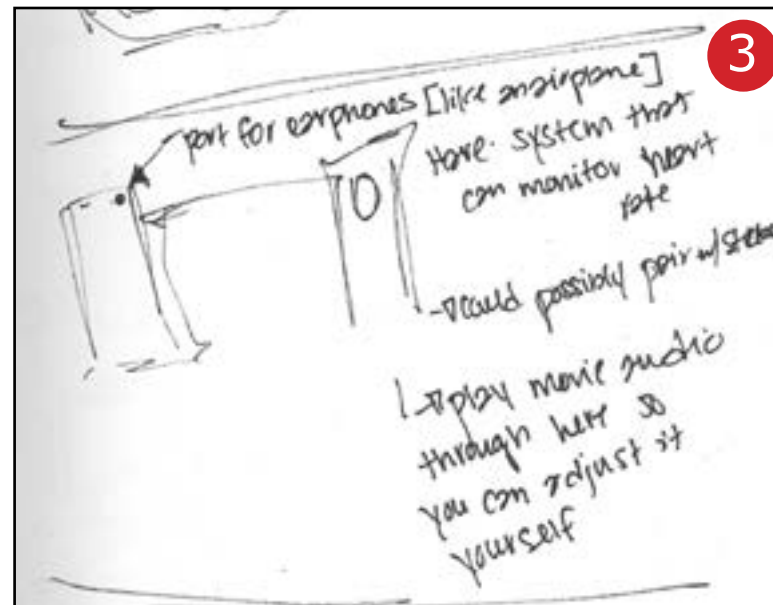 3
port for earphones [like an airplane]
Have system that
can monitor heart
rate
→ could possibly pair w/
→ play movie audio
through here so
you can adjust it
yourself